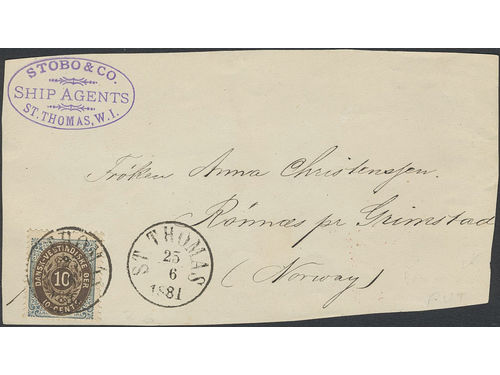 STOBO & CO.
SHIP AGENTS
ST. THOMAS, W.I.
Frøken Anna Christensen.
Rønnæs pr Grimstad
(Norway)
ST THOMAS
25
6
1881
DANSK VESTINDISKE ØER
10
10 CENTS